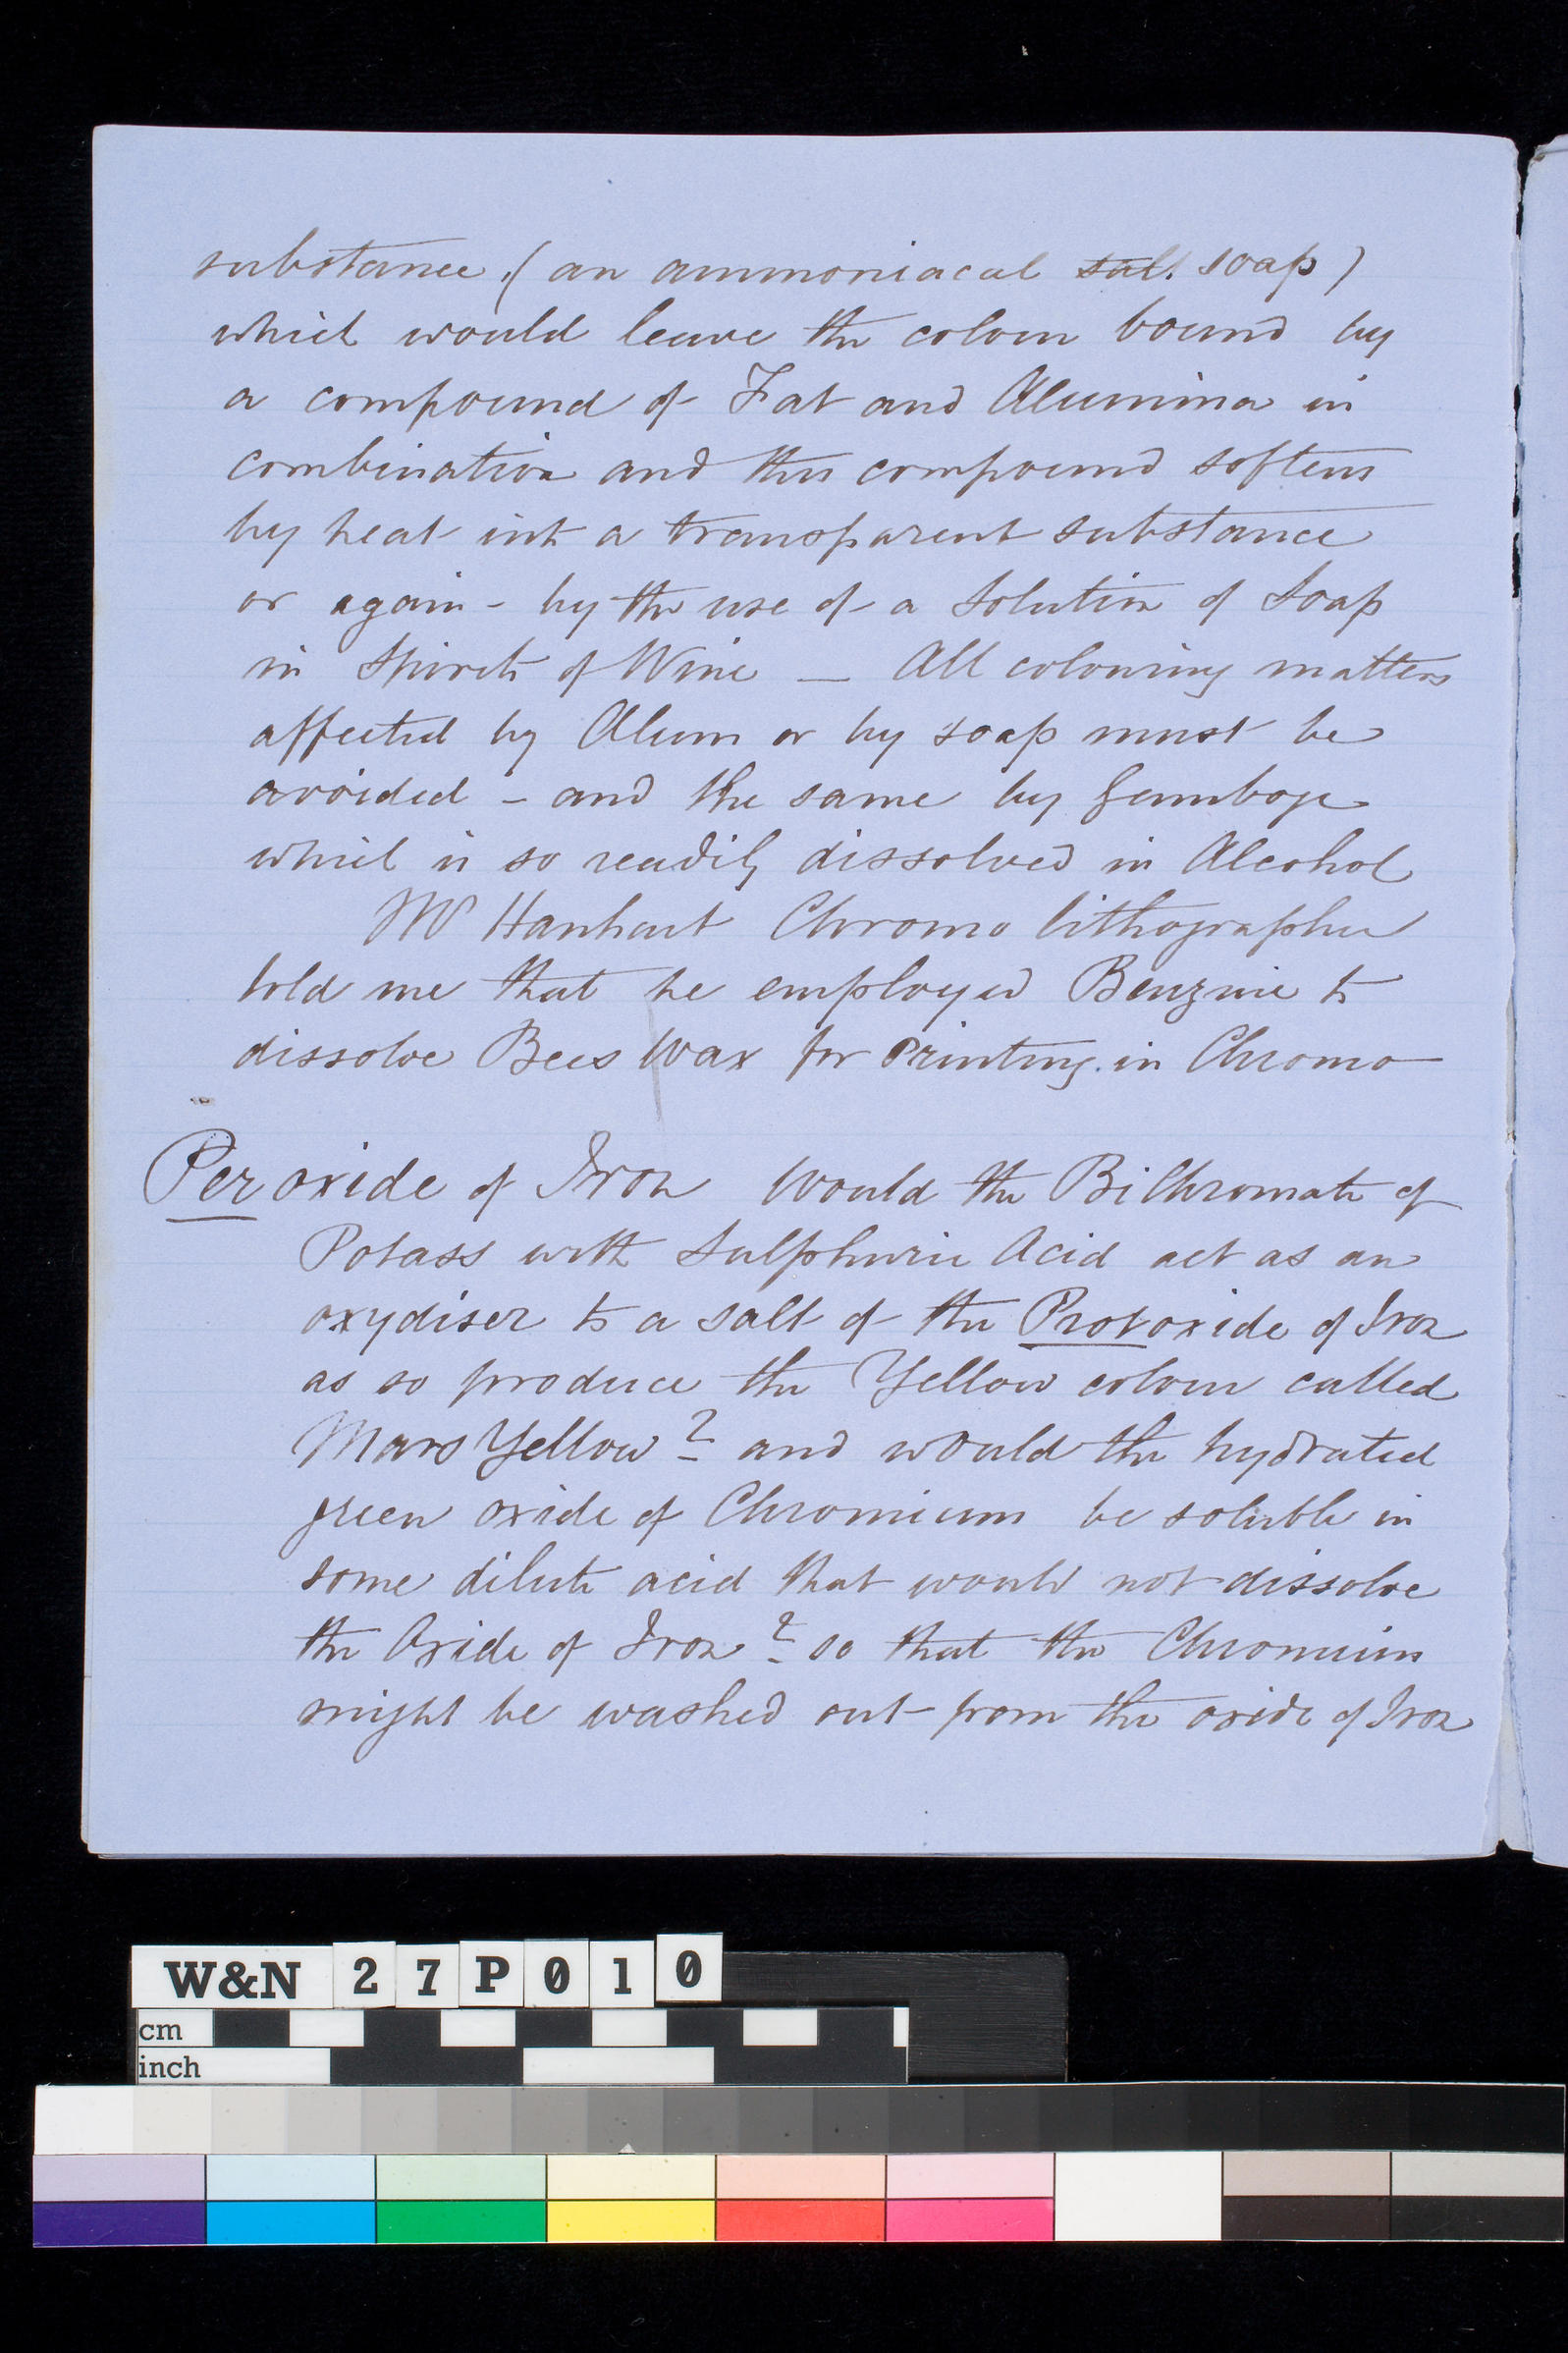 substance, (an ammoniacal salt. soap)
which would leave the colour bound by
a compound of Fat and Alumina in
combination and this compound softens
by heat into a transparent substance
or again - by the use of a Solution of Soap
in Spirits of Wine — All colouring matters
affected by Alum or by soap must be
avoided - and the same by Gamboge
which is so readily dissolved in Alcohol
Mr Hanhart Chromo lithographer
told me that he employed Benzine to
dissolve Bees Wax for Printing. in Chromo
Peroxide of Iron Would the BiChromate of
Potass with Sulphuric Acid act as an
oxydiser to a salt of the Protoxide of Iron
as so produce the Yellow colour called
Mars Yellow? and would the hydrated
green oxide of Chromium be soluble in
some dilute acid that would not dissolve
the Oxide of Iron? so that the Chromium
might be washed out from the oxide of Iron
W&N 27P010
cm
inch